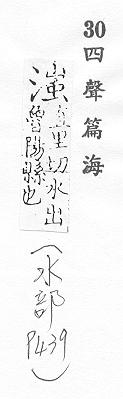 30四聲篇海
滍直里切水出
魯陽縣也
(水部P439)